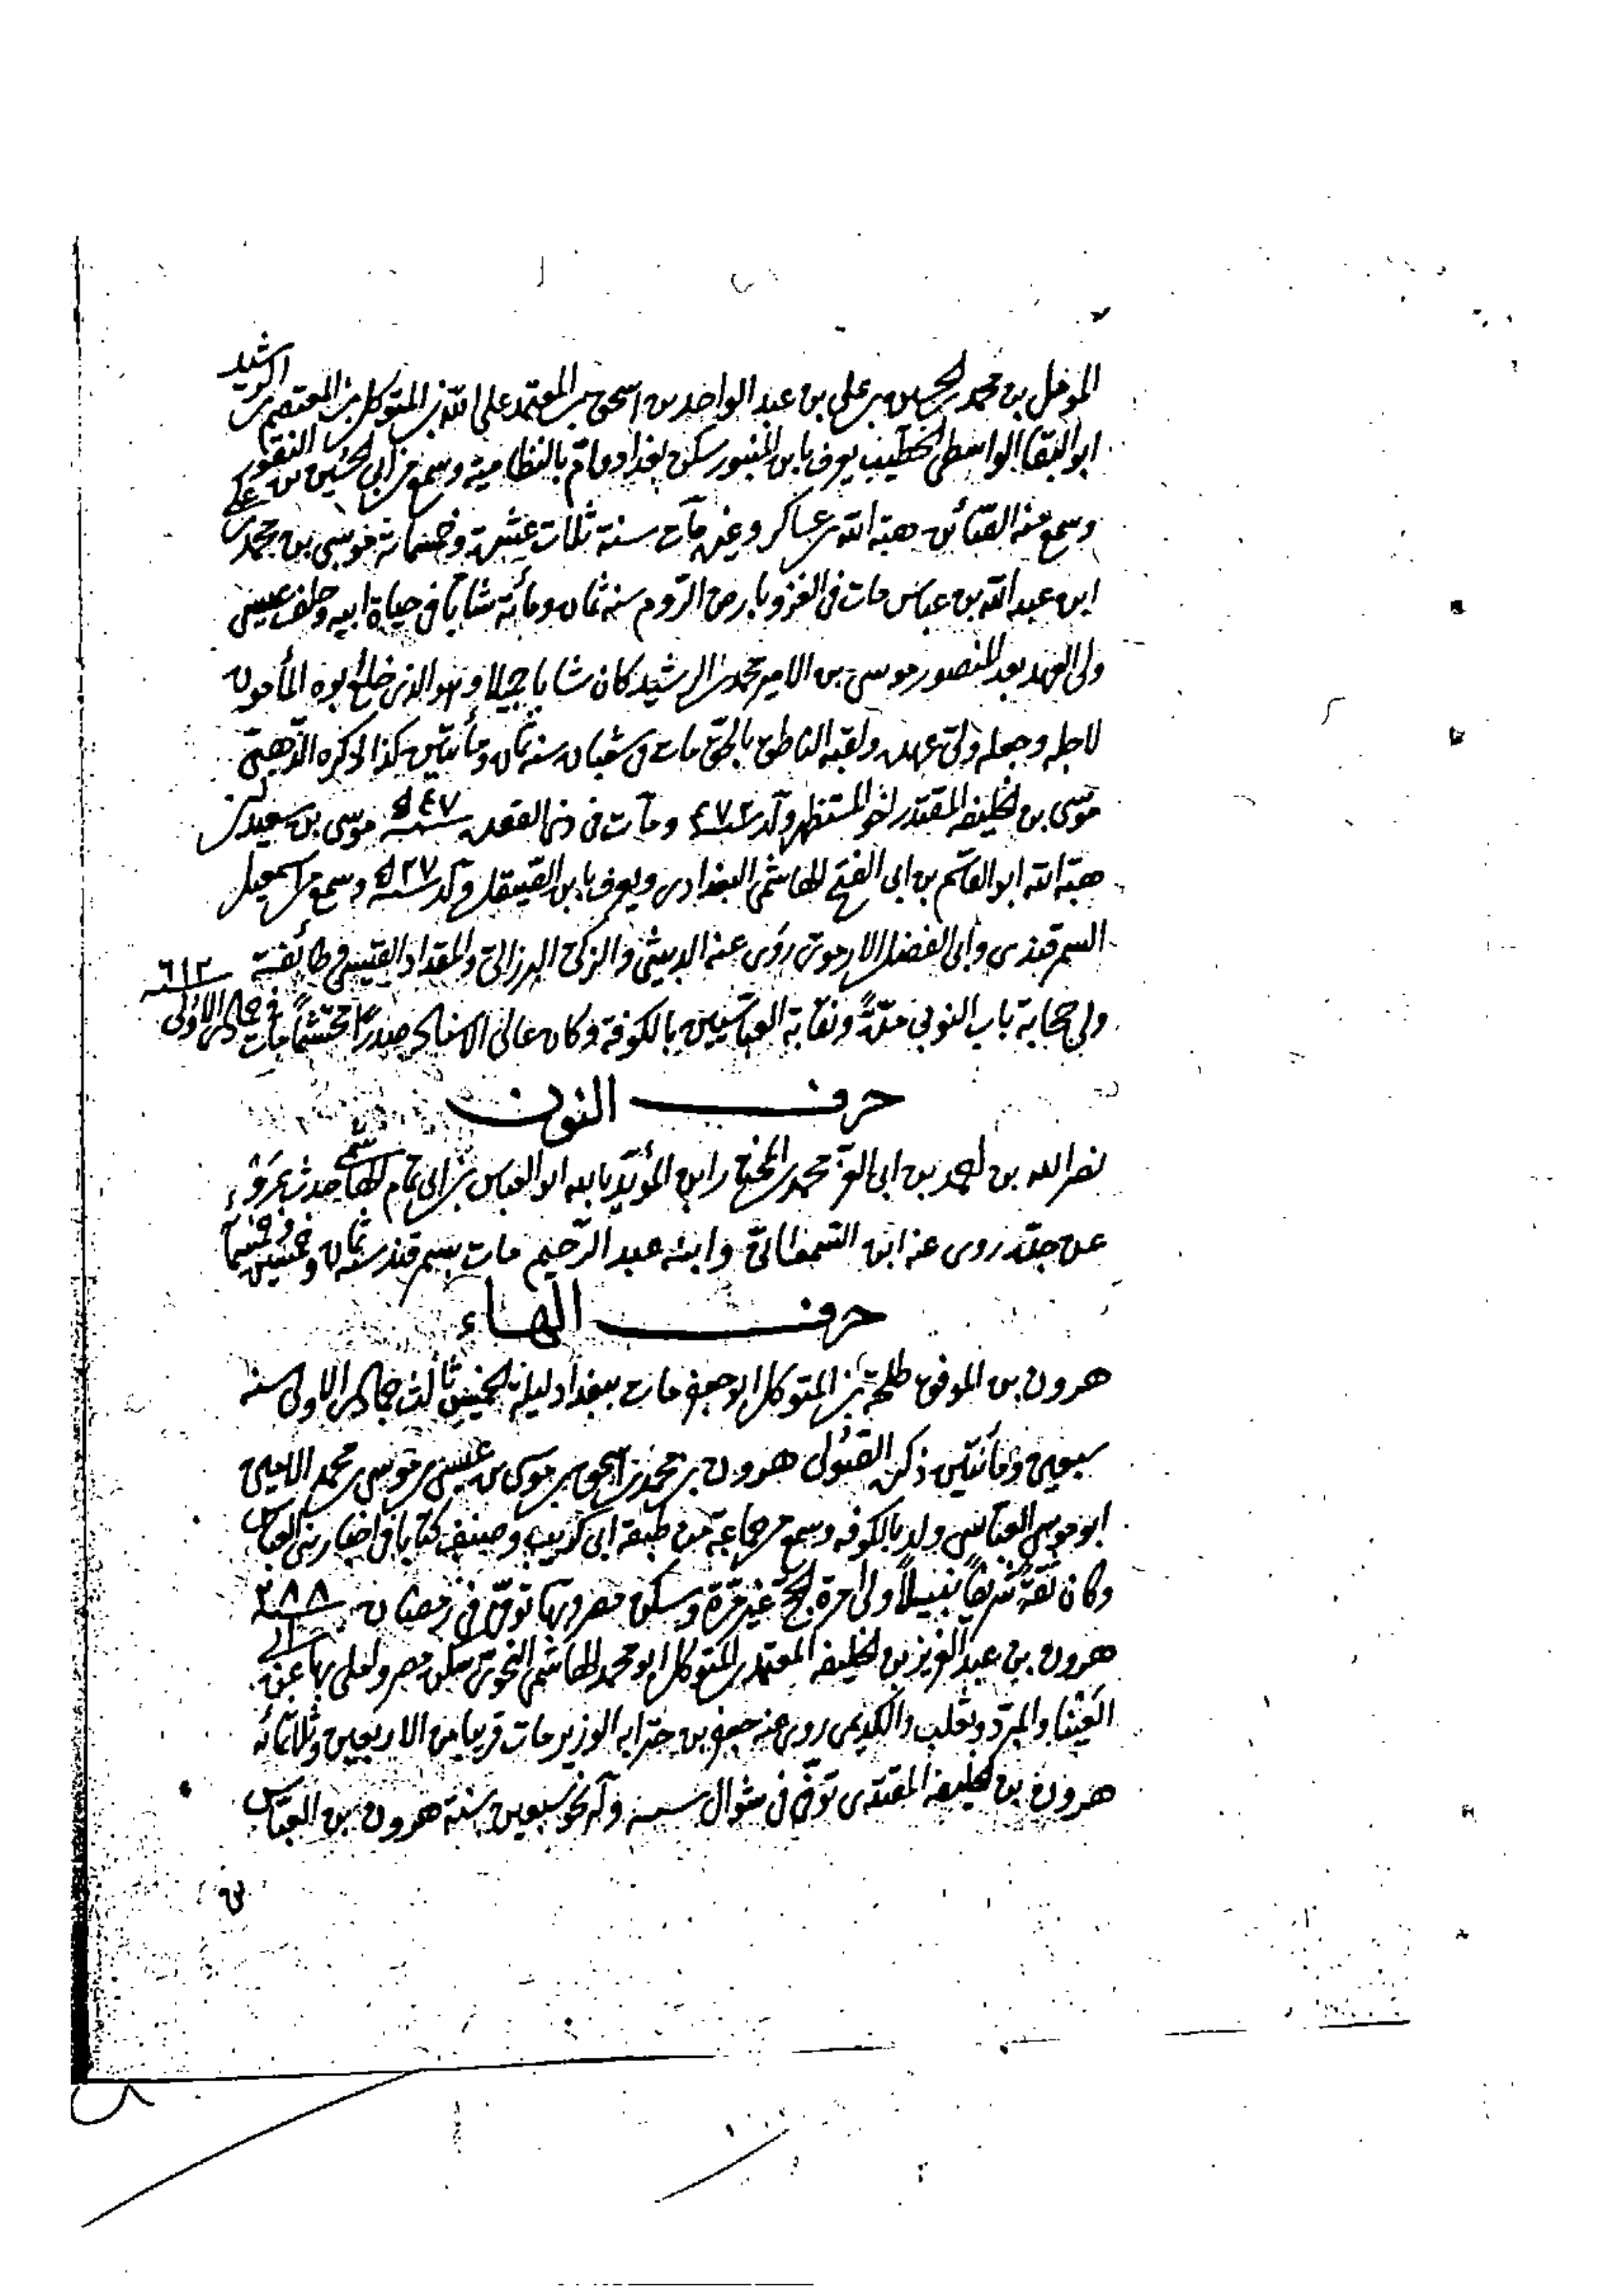 المؤمل بن محمد الحسين بن علي بن عبد الواحد بن اسحق بن المعتمد على الله بن المتوكل بن المعتصم بن الرشيد
ابو البقا الواسطى الخطيب يعرف بابن المنبور سكن بغداد وامّ بالنظامية وسمع من ابي الحسين بن النقور
وسمع منه القبائن هبة الله بن عساكر وغيره مات سنة ثلاث عشرة وخمسمائة موسى بن محمد بن علي
ابن عبد الله بن عباس مات فى الغزو بارض الروم سنه ثمان ومائة شابا فى حياة ابيه وخلف عيسى
ولى العهد بعد المنصور موسى بن الامير محمد بن الرشيد كان شابا جميلا وهو الذى خلع ابوه المأمون
لاجله وجعله ولىّ عهده ولقبه الناطق بالحق مات فى شعبان سنه ثمان ومأتين كذا ذكره الذهبى
موسى بن الخليفه المقتدر اخو المستظهر ولد سنة ٤٧٢ ومات فى ذى القعده سنة ٥٤٧ موسى بن سعيد بن
هبة الله ابو القاسم بن ابى الفتح الهاشمى البغدادى ويعرف بابن الصيقل ولد سنة ٥٢٧ وسمع من اسمعيل
السمرقندى وابى الفضل الارموى روى عنه الدبيثى والزكى البرزالى والمقداد القيسى وطائفة
ولى حجابة باب النوبى مدّةً ونقابة العباسيين بالكوفة وكان عالى الاسناد صدراً محتشماً مات فى جمادى الاولى سنة ٦١٢
حرف النون
نصر الله بن احمد بن ابى العز محمد بن المختار ابن المؤيد بالله ابو العباس بن ابى تمام الهاشمى حدث بجزوء
عن جدّه روى عنه ابن السمعانىّ وابنه عبد الرّحيم مات بسمرقند سنه ثمان وخمسين وخمسمائة
حرف الهاء
هرون بن الموفق طلحة بن المتوكل ابو جعفر مات ببغداد ليلة الخميس ثالث جمادى الاولى سنه
سبعين ومأتين ذكره الصولى هرون بن محمد بن اسحق بن موسى بن عيسى بن موسى بن محمد الامين
ابو موسى العباسى ولد بالكوفه وسمع من جماعة من طبقة ابى كريب وصنف كتابا فى اخبار بنى العباس
وكان ثقةً شريفاً نبيلاً ولى امرة الحج غير مرّة وسكن مصر وبها توفى فى رمضان سنة ٢٨٨
هرون بن عبد العزيز بن الخليفه المعتمد بن المتوكل ابو محمد الهاشمى النحوى سكن مصر واملى بها عن ابى
العينا والمبرّد وثعلب والكديمى روى عنه جعفر بن حنزابه الوزير مات قريبا من الاربعين وثلاثمائه
هرون بن الخليفه المقتدى توفى فى شوال سنة وله نحو سبعين سنة هرون بن العباس
بن